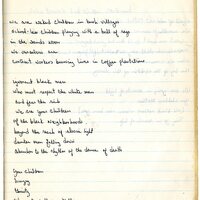 we are naked children in bush villages
school-less children playing with a ball of rags
in the sands at noon
we ourselves are
contract workers burning lives in coffee plantations
ignorant black men
who must respect the white man
and fear the rich
we are your children
of the black neighbourhoods
beyond the reach of electric light
drunken men falling down
abandon to the rhythm of the dance of death
your children
hungry
thirsty